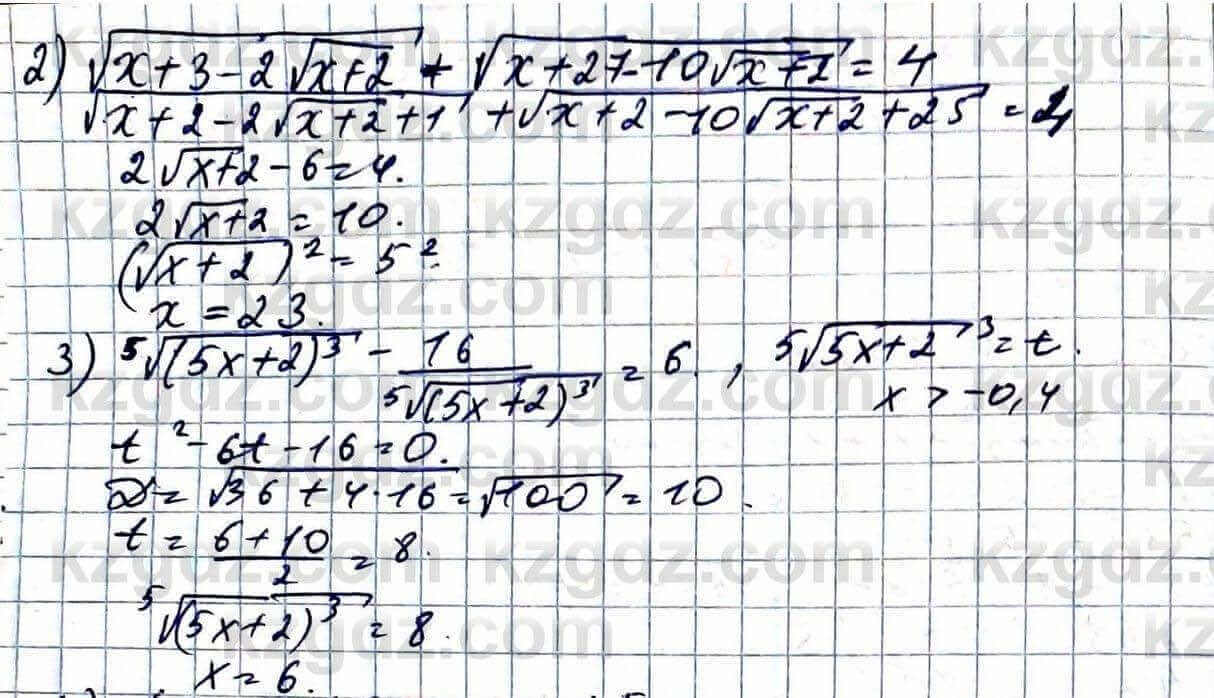 2) √(x+3-2√(x+2)) + √(x+27-10√(x+2)) = 4
√(x+2-2√(x+2)+1) + √(x+2-10√(x+2)+25) = 4
2√(x+2) - 6 = 4.
2√(x+2) = 10.
(√(x+2))² = 5².
x = 23.
3) ⁵√((5x+2)³) - 16/⁵√((5x+2)³) = 6. , ⁵√(5x+2)³ = t.
x > -0,4
t² - 6t - 16 = 0.
D = √(36+4·16) = √100 = 10.
t = (6+10)/2 = 8.
⁵√((5x+2)³) = 8.
x = 6.
kzgdz.com